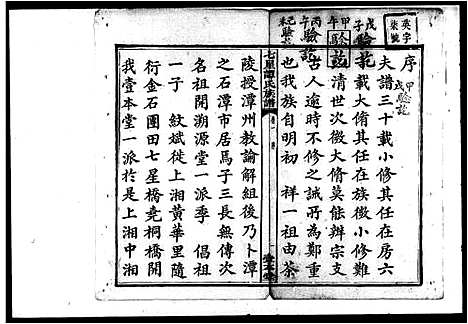 英字
柒號
甲戌驗訖
戊子驗訖
甲午驗訖
丙午驗訖
己未驗
序
夫譜三十載小修其任在房六
十載大修其任在族徵小修難
清世次徵大脩莫能辨宗支
古人逾時不修之誡所為鄭重
也我族自明初 祥一祖由茶
七星譚氏族譜
卷一
壹本堂
陵授潭州教諭解組後乃卜潭
之石潭市居焉子三長無傳次
名祖開溯源堂一派季 倡祖
一子 敏斌徙上湘黃華里隨
衍金石團田七星橋堯桐橋開
我壹本堂一派於是上湘中湘